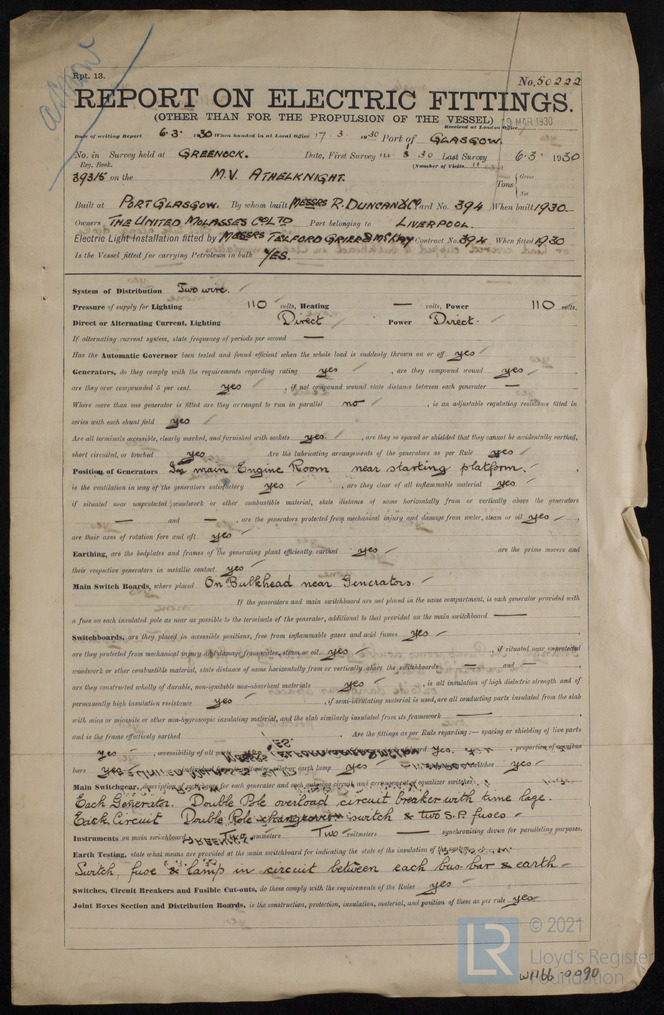 Rpt. 13.
No. 50222
REPORT ON ELECTRIC FITTINGS.
(OTHER THAN FOR THE PROPULSION OF THE VESSEL)
Received at London Office 9 MAR 1930
Date of writing Report 6.3. 1930 When handed in at Local Office 7 3. 1930 Port of GLASGOW.
No. in Survey held at GREENOCK. Date, First Survey 3 30 Last Survey 6.3. 1930
Reg. Book. (Number of Visits
39315 on the M.V. ATHELKNIGHT. Tons { Gross Net
Built at PORT GLASGOW. By whom built MESSRS R. DUNCAN & CO. Yard No. 394 When built 1930.
Owners THE UNITED MOLASSES CO. LTD Port belonging to LIVERPOOL.
Electric Light Installation fitted by MESSRS TELFORD GRIER & MCKAY Contract No. 394 When fitted 1930
Is the Vessel fitted for carrying Petroleum in bulk YES.
System of Distribution Two wire.
Pressure of supply for Lighting 110 volts, Heating — volts, Power 110 volts.
Direct or Alternating Current, Lighting Direct Power Direct.
If alternating current system, state frequency of periods per second —
Has the Automatic Governor been tested and found efficient when the whole load is suddenly thrown on or off yes
Generators, do they comply with the requirements regarding rating yes, are they compound wound yes
are they over compounded 5 per cent. yes, if not compound wound state distance between each generator —
Where more than one generator is fitted are they arranged to run in parallel no, is an adjustable regulating resistance fitted in
series with each shunt field yes
Are all terminals accessible, clearly marked, and furnished with sockets yes, are they so spaced or shielded that they cannot be accidentally earthed,
short circuited, or touched yes Are the lubricating arrangements of the generators as per Rule yes
Position of Generators In main Engine Room near starting platform.
is the ventilation in way of the generators satisfactory yes, are they clear of all inflammable material yes
if situated near unprotected woodwork or other combustible material, state distance of same horizontally from or vertically above the generators
— and —, are the generators protected from mechanical injury and damage from water, steam or oil yes
are their axes of rotation fore and aft yes
Earthing, are the bedplates and frames of the generating plant efficiently earthed yes are the prime movers and
their respective generators in metallic contact yes
Main Switch Boards, where placed On Bulkhead near Generators.
If the generators and main switchboard are not placed in the same compartment, is each generator provided with
a fuse on each insulated pole as near as possible to the terminals of the generator, additional to that provided on the main switchboard —
Switchboards, are they placed in accessible positions, free from inflammable gases and acid fumes yes
are they protected from mechanical injury and damage from water, steam or oil yes, if situated near unprotected
woodwork or other combustible material, state distance of same horizontally from or vertically above the switchboards — and —
are they constructed wholly of durable, non-ignitable non-absorbent materials yes, is all insulation of high dielectric strength and of
permanently high insulation resistance yes, if semi-insulating material is used, are all conducting parts insulated from the slab
with mica or micanite or other non-hygroscopic insulating material, and the slab similarly insulated from its framework —
and is the frame effectively earthed Are the fittings as per Rule regarding:— spacing or shielding of live parts
yes, accessibility of all parts yes, proportion of omnibus
bars yes earth lamp yes switches yes
Main Switchgear, description of switchgear for each generator and each outgoing circuit and arrangement of equaliser switches
Each Generator. Double Pole overload circuit breaker with time lage.
Each Circuit Double Pole changeover switch & two S.P. fuses
Instruments on main switchboard Two ammeters Two voltmeters — synchronising device for paralleling purposes.
Earth Testing, state what means are provided at the main switchboard for indicating the state of the insulation of
Switch, fuse & lamp in circuit between each bus bar & earth
Switches, Circuit Breakers and Fusible Cut-outs, do these comply with the requirements of the Rules yes
Joint Boxes Section and Distribution Boards, is the construction, protection, insulation, material, and position of these as per rule yes
LR © 2021
Lloyd's Register
Foundation
W1166-0090